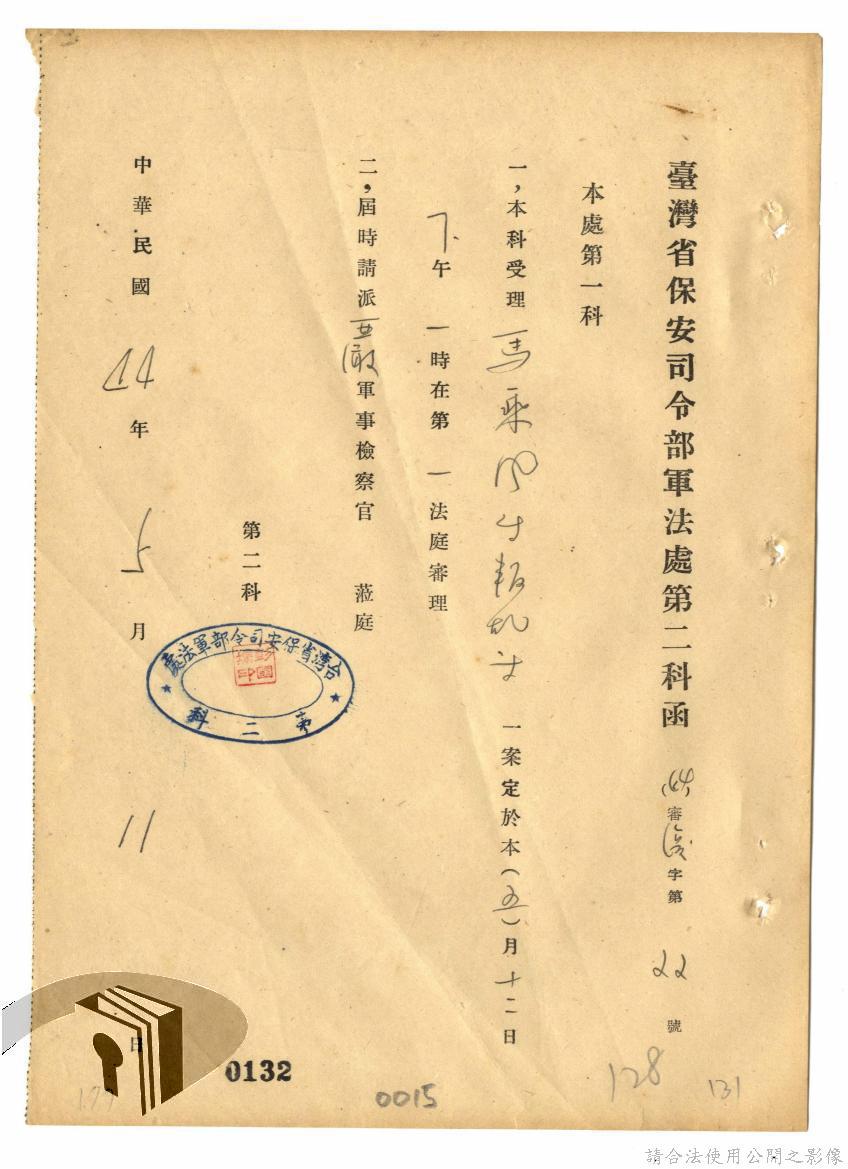 臺灣省保安司令部軍法處第二科函 (44)審復字第22號
本處第一科
一，本科受理馬乘風等叛亂等一案定於本(五)月十二日
下午一時在第一法庭審理
二，屆時請派軍事檢察官 蒞庭
第二科
台湾省保安司令部軍法處
第二科
中華民國44年5月11日
0132
0015
128
131
請合法使用公開之影像